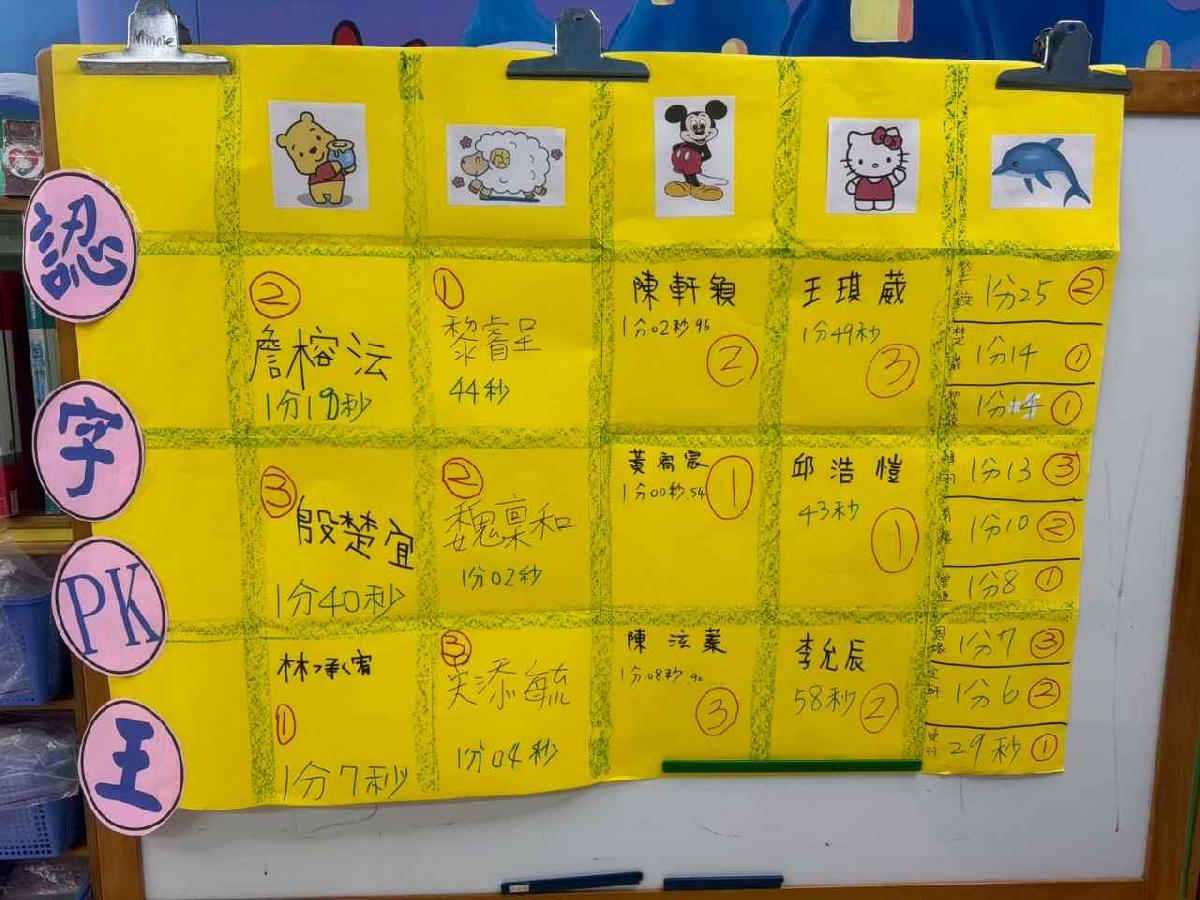 Minnie
認
字
PK
王
②
詹榕沄
1分19秒
①
黎睿呈
44秒
陳軒穎
1分02秒96
②
王琪葳
1分49秒
③
1分25 ②
1分14 ①
1分 ①
③
殷楚宜
1分40秒
②
魏稟和
1分02秒
黃宥宸
1分00秒54
①
邱浩愷
43秒
①
1分13 ③
1分10 ②
1分8 ①
林承宥
①
1分7秒
③
添毓
1分04秒
陳泫蓁
1分08秒90
③
李允辰
58秒 ②
1分7 ③
1分6 ②
29秒 ①